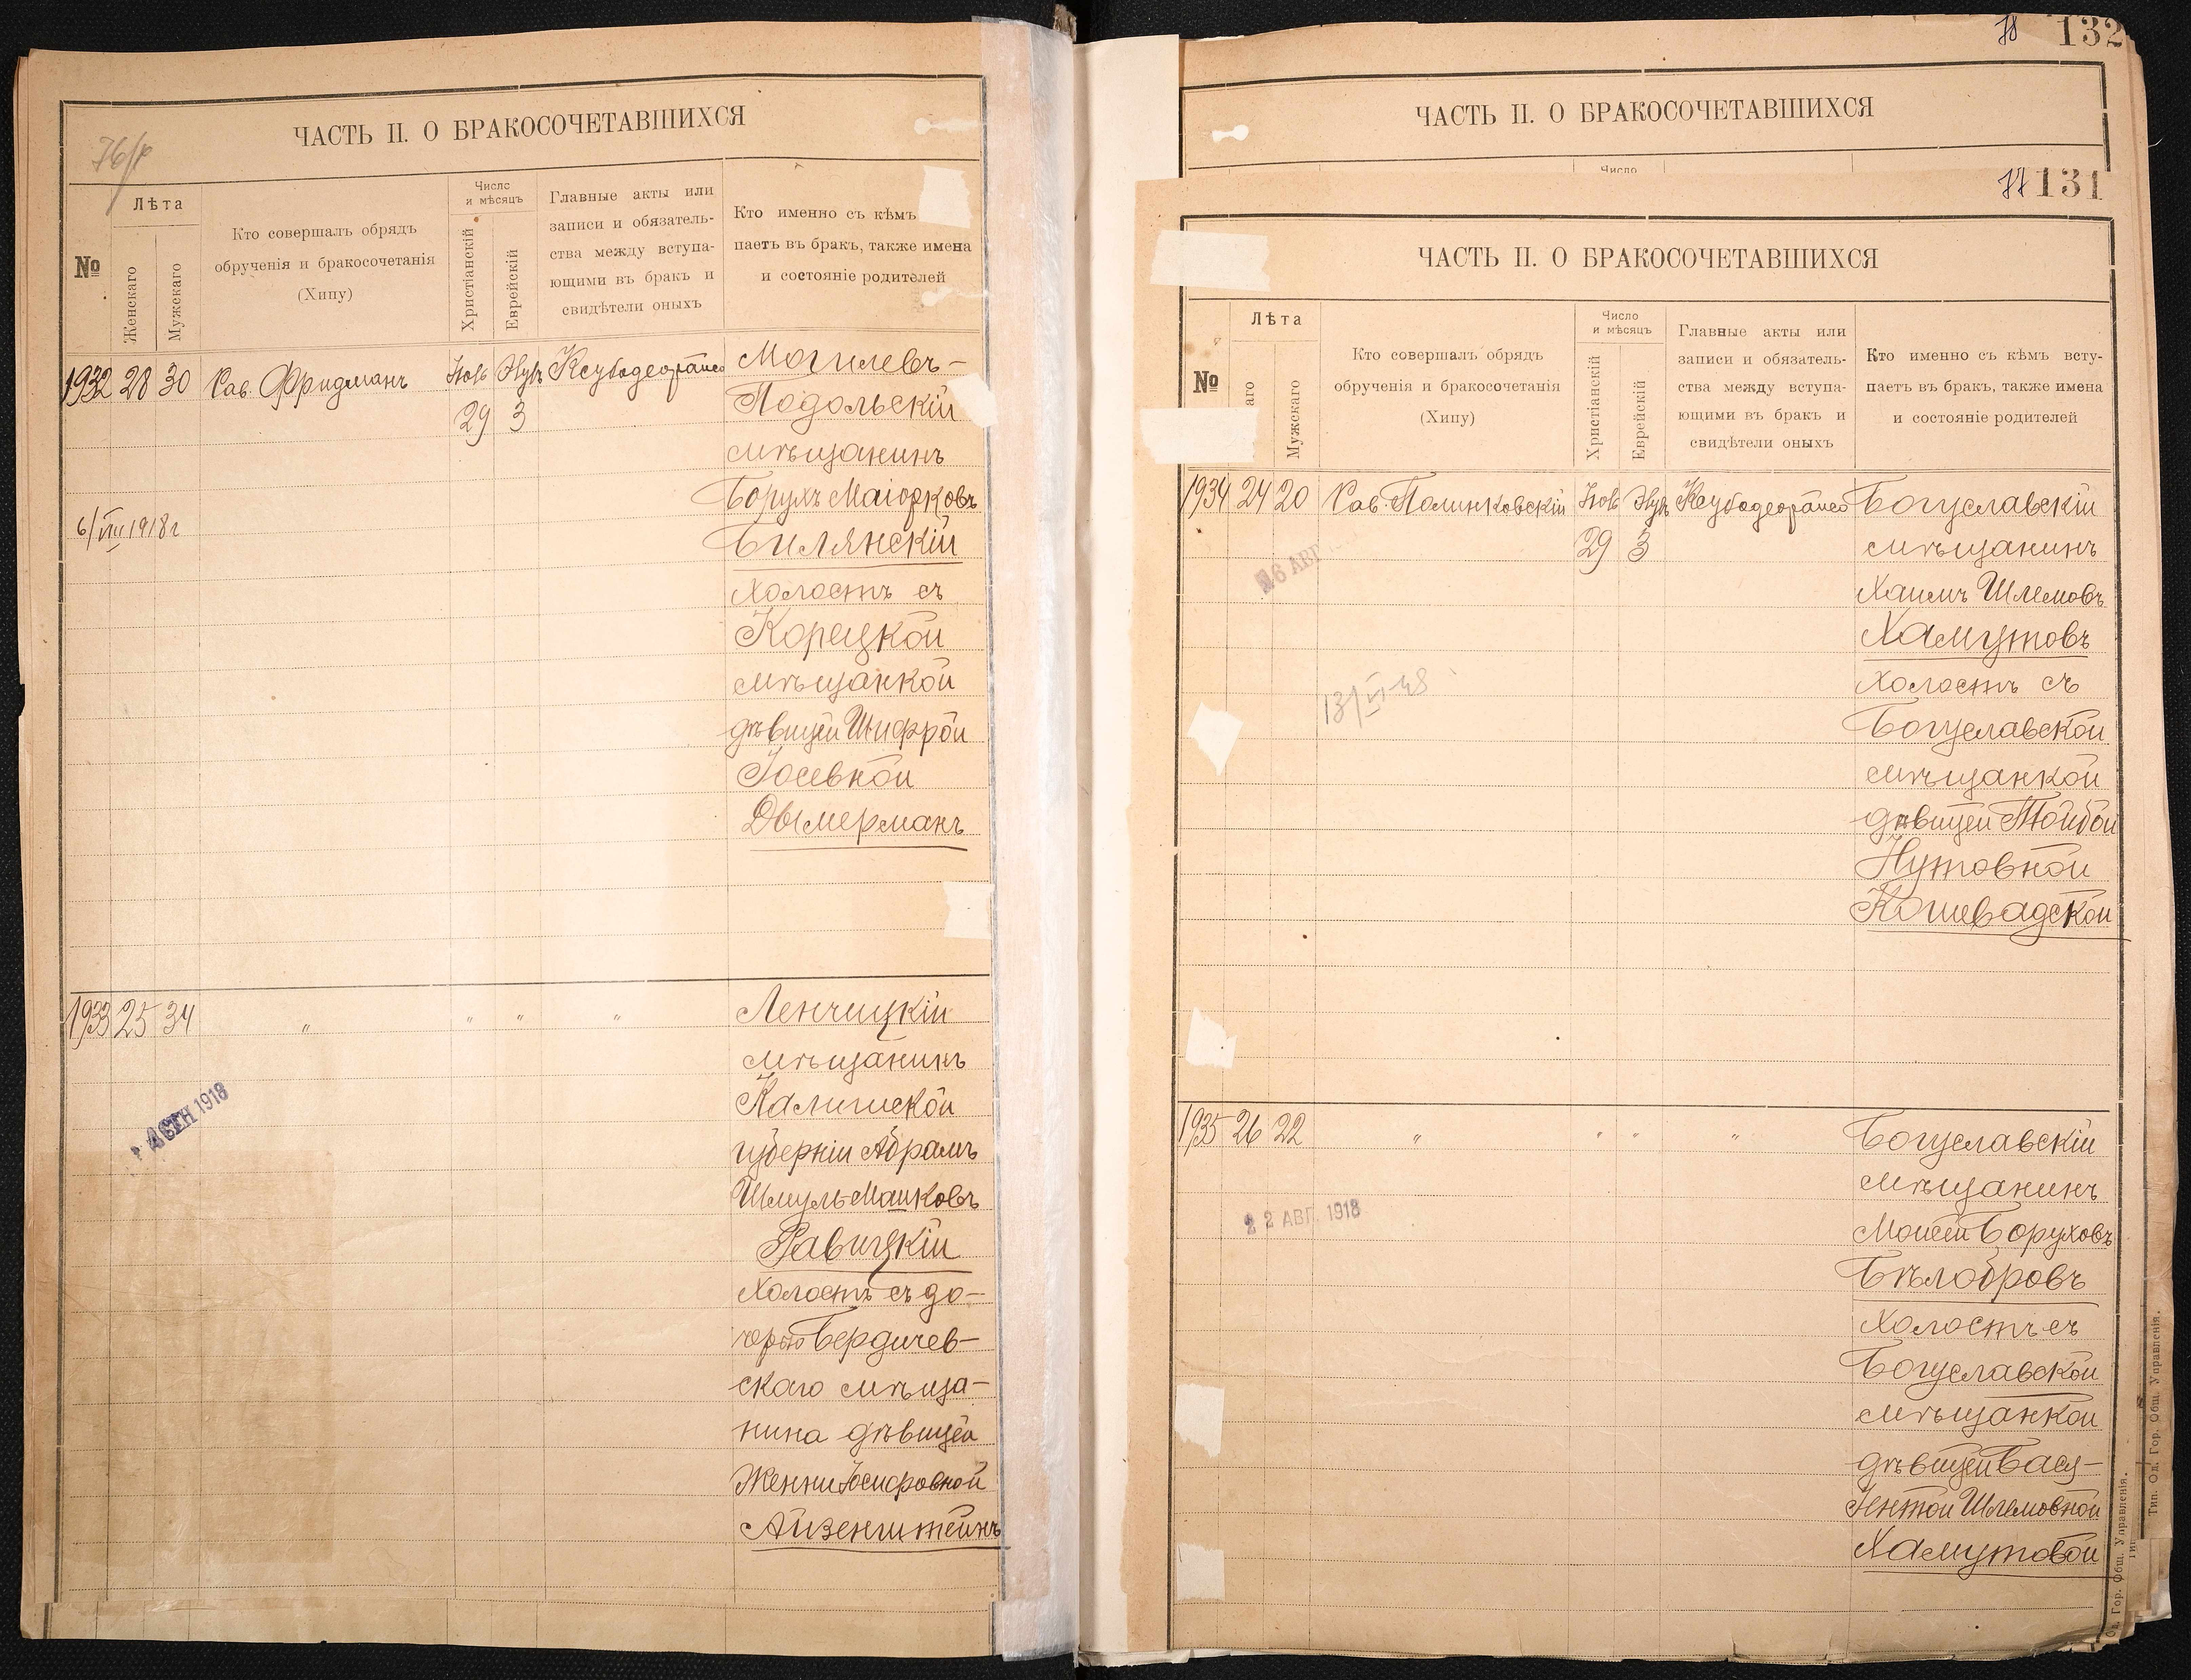 76/р
ЧАСТЬ II. О БРАКОСОЧЕТАВШИХСЯ
№
Лѣта
Женскаго
Мужскаго
Кто совершалъ обрядъ
обрученія и бракосочетанія
(Хипу)
Число
и мѣсяцъ
Христіанскій
Еврейскій
Главные акты или
записи и обязатель-
ства между вступа-
ющими въ бракъ и
свидѣтели оныхъ
Кто именно съ кѣмъ
паетъ въ бракъ, также имена
и состояніе родителей
1932 28 30 Рав. Фридманъ
29 3
6/VIII 1918 г
Могилевъ-
Подольскій
мѣщанинъ
Борухъ Маіорковъ
Билянскій
холостъ съ
Корецкой
мѣщанкой
дѣвицей Шифрой
Іосевной
Дымерманъ
1933 25 34 " " " "
4 СЕН 1918
Ленчицкій
мѣщанинъ
Калишской
губерніи Абрамъ
Шмуль Маиковъ
Равицкій
холостъ съ до-
черью Бердичев-
скаго мѣща-
нина дѣвицей
Женни Іосифовной
Айзенштейнъ
78 132
ЧАСТЬ II. О БРАКОСОЧЕТАВШИХСЯ
Число
77 131
ЧАСТЬ II. О БРАКОСОЧЕТАВШИХСЯ
№
Лѣта
аго
Мужскаго
Кто совершалъ обрядъ
обрученія и бракосочетанія
(Хипу)
Число
и мѣсяцъ
Христіанскій
Еврейскій
Главные акты или
записи и обязатель-
ства между вступа-
ющими въ бракъ и
свидѣтели оныхъ
Кто именно съ кѣмъ всту-
паетъ въ бракъ, также имена
и состояніе родителей
1934 24 20 Рав. Полинковскій
29 3
6 АВГ
Богуславскій
мѣщанинъ
Хаимъ Шлемовъ
Хамутовъ
холостъ съ
Богуславской
мѣщанкой
дѣвицей Тойбой
Нутовной
Кошевадской
1935 26 22 " " " "
2 АВГ. 1918
Богуславскій
мѣщанинъ
Моисей Боруховъ
Бѣлобровъ
холостъ съ
Богуславской
мѣщанкой
дѣвицей Басу-
Іентой Шлемовной
Хамутовой
Гор. Общ. Управленія.
Тип. Од. Гор. Общ. Управленія.